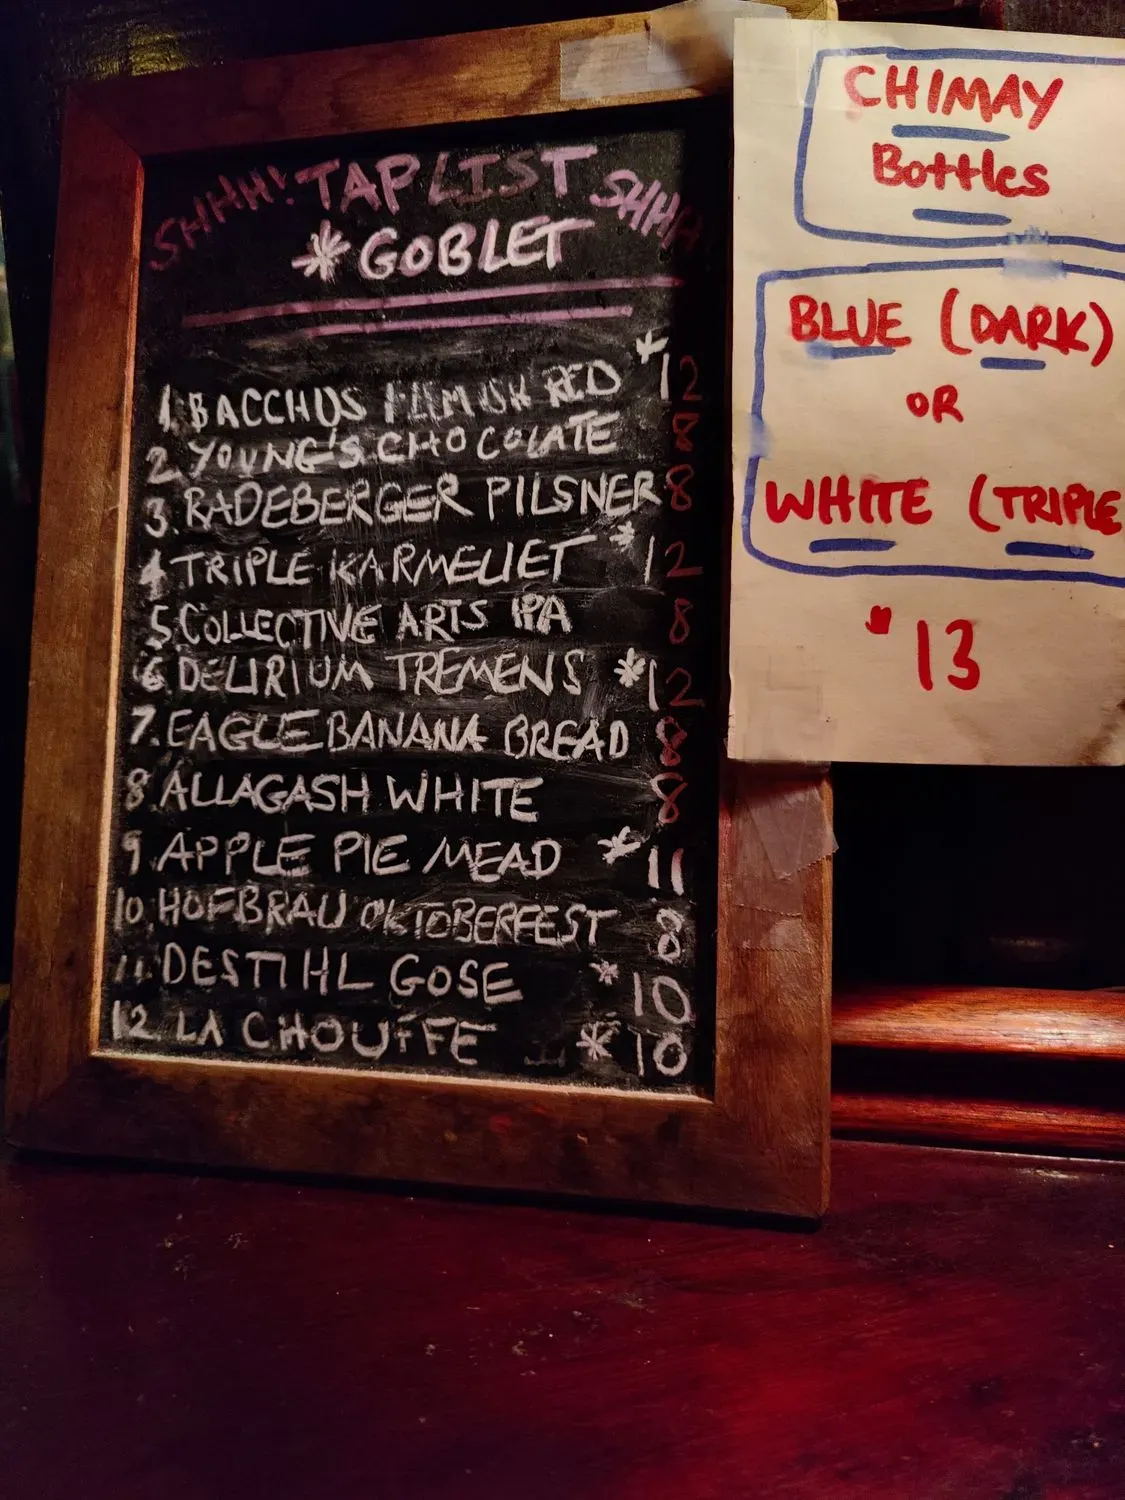 SHHH! TAP LIST SHHH
* GOBLET
1. BACCHUS FLEMISH RED * 12
2 YOUNG'S CHOCOLATE 8
3. RADEBERGER PILSNER 8
4 TRIPLE KARMELIET * 12
5. COLLECTIVE ARTS IPA 8
6. DELIRIUM TREMENS * 12
7. EAGLE BANANA BREAD 8
8. ALLAGASH WHITE 8
9. APPLE PIE MEAD * 11
10. HOFBRAU OKTOBERFEST 8
11. DESTIHL GOSE * 10
12 LA CHOUFFE * 10
CHIMAY
Bottles
BLUE (DARK)
OR
WHITE (TRIPLE
13